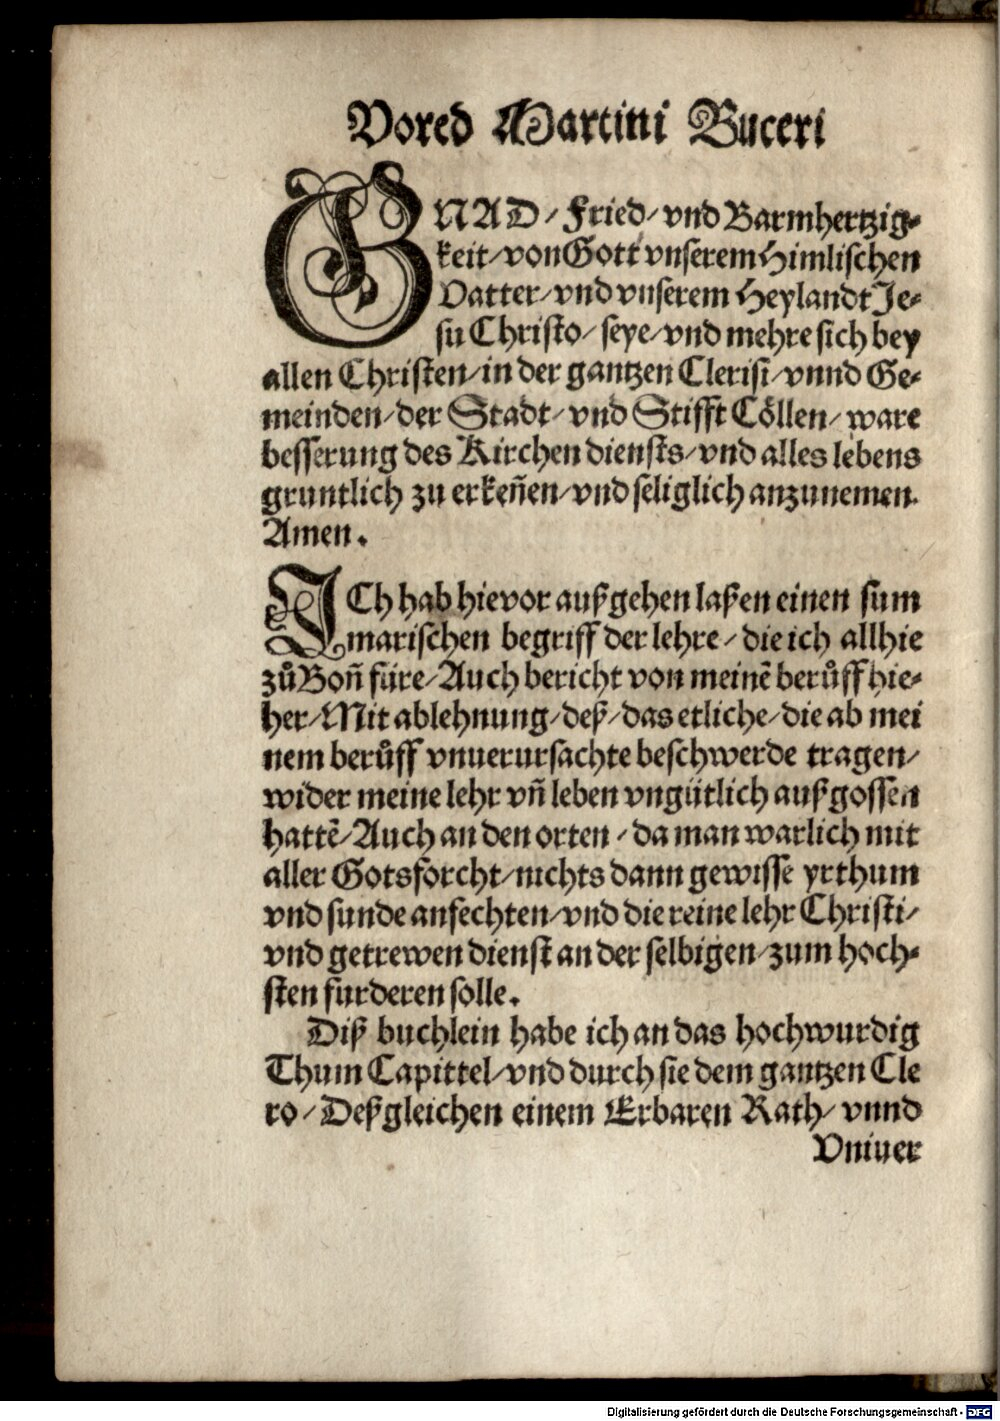 Vored Martini Buceri
GNAD/ Fried/ vnd Barmhertzig-
keit/ von Gott vnserem Himlischen
Vatter/ vnd vnserem Heylandt Je-
su Christo/ seye/ vnd mehre sich bey
allen Christen/ in der gantzen Clerisi/ vnnd Ge-
meinden/ der Stadt/ vnd Stifft Cöllen/ ware
besserung des Kirchen diensts/ vnd alles lebens
gruntlich zu erkeñen/ vnd seliglich anzunemen.
Amen.
ICh hab hievor außgehen laßen einen sum
marischen begriff der lehre/ die ich allhie
zů Boñ füre/ Auch bericht von meinē berůff hie-
her/ Mit ablehnung/ deß/ das etliche/ die ab mei
nem berůff vnuerursachte beschwerde tragen/
wider meine lehr vñ leben vngütlich außgossen
hattē/ Auch an den orten/ da man warlich mit
aller Gotsforcht/ nichts dann gewisse yrthum
vnd sunde anfechten/ vnd die reine lehr Christi/
vnd getrewen dienst an der selbigen/ zum hoch-
sten furderen solle.
Diß buchlein habe ich an das hochwurdig
Thum Capittel/ vnd durch sie dem gantzen Cle
ro/ Deßgleichen einem Erbaren Rath/ vnnd
Vniuer
Digitalisierung gefördert durch die Deutsche Forschungsgemeinschaft - DFG